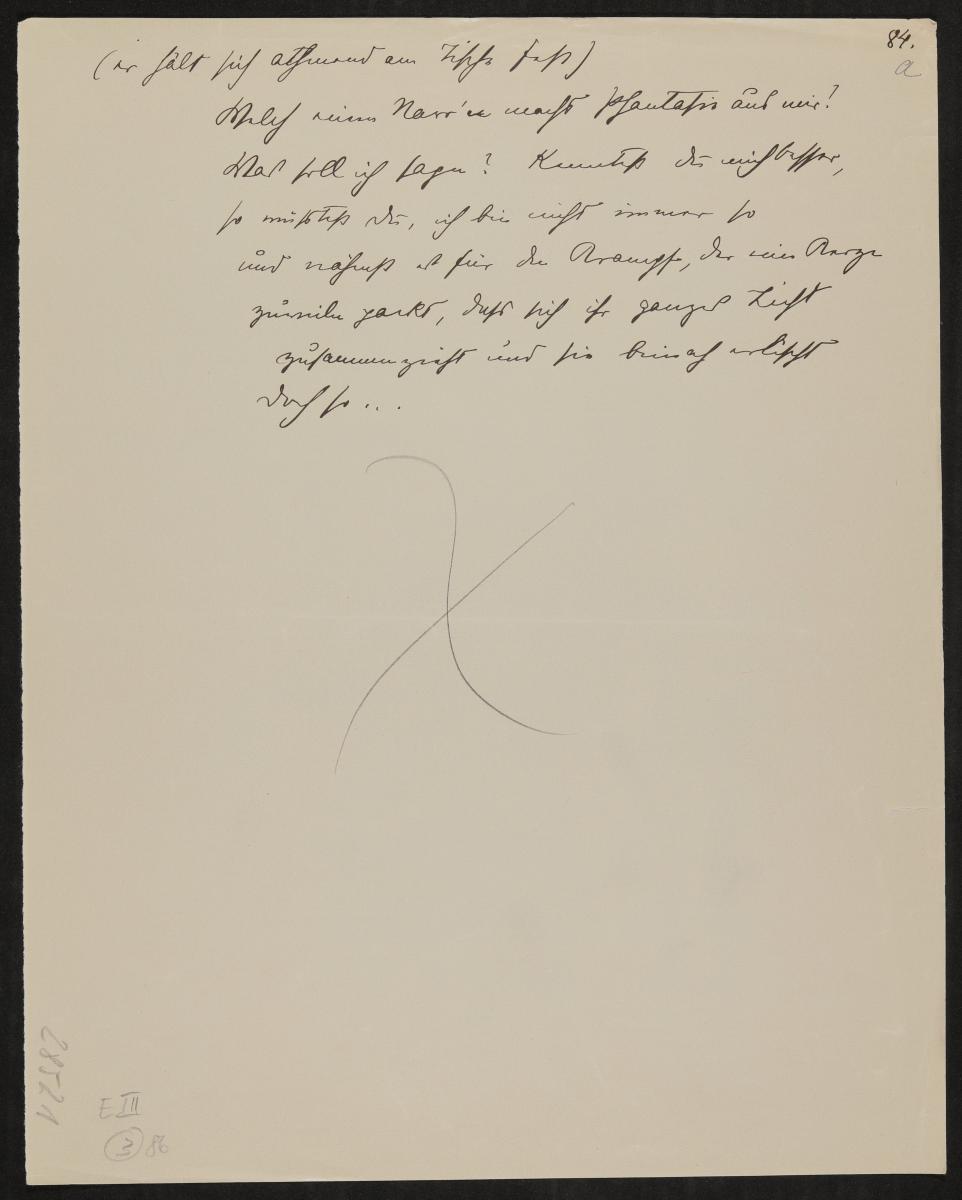 84.
a
(er hält sich athmend am Tische fest)
Welch einen Narr'n macht Phantasie aus mir!
Was soll ich sagen? Kenntest du mich besser,
so wüsstest du, ich bin nicht immer so
und nähmst es für den Krampf, der eine Kerze
zuweilen packt, dass sich ihr ganzes Licht
zusammenzieht und sie beinah erlischt
doch so ...
28521
E III
3 86